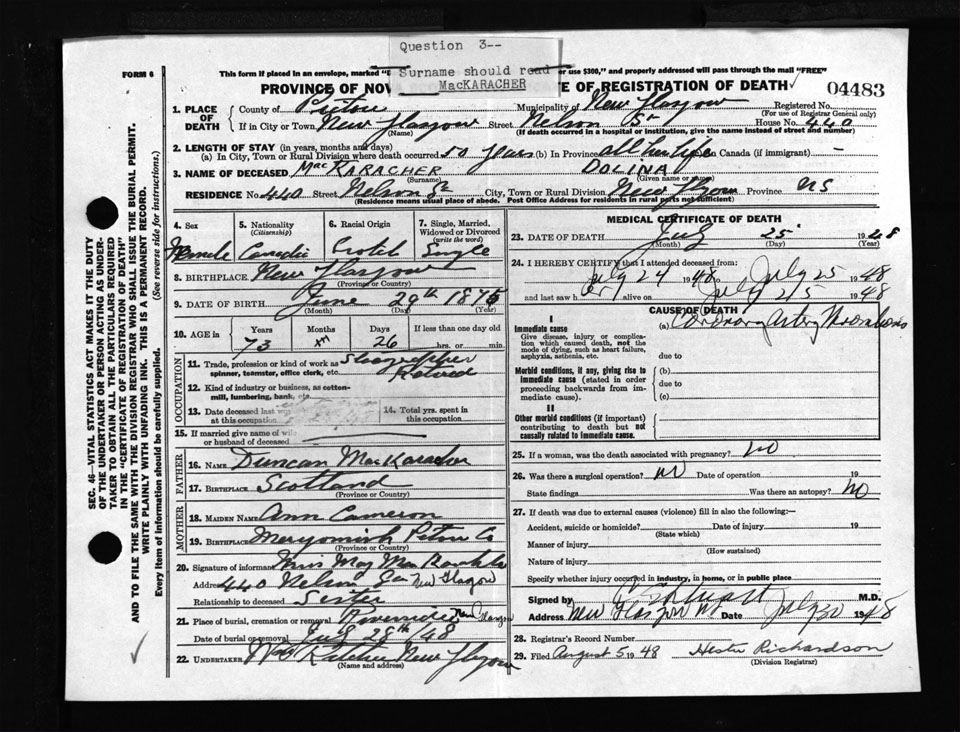 Question 3--
Surname should read
MacKARACHER
FORM 6
This form if placed in an envelope, marked "D or use $300," and properly addressed will pass through the mail "FREE"
PROVINCE OF NOV TE OF REGISTRATION OF DEATH
04483
1. PLACE OF DEATH
County of Pictou Municipality of New Glasgow Registered No.
(For use of Registrar General only)
If in City or Town New Glasgow Street Nelson St House No. 440
(Name) (If death occurred in a hospital or institution, give the name instead of street and number)
2. LENGTH OF STAY (in years, months and days)
(a) In City, Town or Rural Division where death occurred 50 years (b) In Province all her life Canada (if immigrant) -
3. NAME OF DECEASED MacKARACHER DOLINA
(Surname) (Given name or names)
RESIDENCE No. 440 Street Nelson St City, Town or Rural Division New Glasgow Province NS
(Residence means usual place of abode. Post Office Address for residents in rural parts not sufficient)
4. Sex
Female
5. Nationality
(Citizenship)
Canadian
6. Racial Origin
Scotch
7. Single, Married, Widowed or Divorced
(write the word)
Single
8. BIRTHPLACE New Glasgow
(Province or Country)
9. DATE OF BIRTH June 29th 1875
(Month) (Day) (Year)
10. AGE in Years Months Days If less than one day old
73 26 hrs. or min.
OCCUPATION
11. Trade, profession or kind of work as spinner, teamster, office clerk, etc. Stenographer
Retired
12. Kind of industry or business, as cotton-mill, lumbering, bank, etc.
13. Date deceased last was at this occupation
14. Total yrs. spent in this occupation
15. If married give name of wife or husband of deceased
FATHER
16. NAME Duncan MacKaracher
17. BIRTHPLACE Scotland
(Province or Country)
MOTHER
18. MAIDEN NAME Ann Cameron
19. BIRTHPLACE Merigomish Pictou Co
(Province or Country)
20. Signature of informant Miss May MacKaracher
Address 440 Nelson New Glasgow
Relationship to deceased Sister
21. Place of burial, cremation or removal Riverside New Glasgow
Date of burial or removal July 28th 48
22. UNDERTAKER New Glasgow
(Name and address)
MEDICAL CERTIFICATE OF DEATH
23. DATE OF DEATH July 25 1948
(Month) (Day) (Year)
24. I HEREBY CERTIFY that I attended deceased from:
July 24 1948 July 25 1948
and last saw her alive on July 25 1948
CAUSE OF DEATH
I
Immediate cause
Give disease, injury or complication which caused death, not the mode of dying, such as heart failure, asphyxia, asthenia, etc.
(a) Coronary Artery Thrombosis
due to
Morbid conditions, if any, giving rise to immediate cause (stated in order proceeding backwards from immediate cause).
(b)
due to
(c)
II
Other morbid conditions (if important) contributing to death but not causally related to immediate cause.
25. If a woman, was the death associated with pregnancy? no
26. Was there a surgical operation? no Date of operation 19
State findings Was there an autopsy? no
27. If death was due to external causes (violence) fill in also the following:—
Accident, suicide or homicide? Date of injury 19
(State which)
Manner of injury
(How sustained)
Nature of injury
Specify whether injury occurred in industry, in home, or in public place
Signed by M.D.
Address New Glasgow NS Date July 30 1948
28. Registrar's Record Number
29. Filed August 5 1948 Hester Richardson
(Division Registrar)
SEC. 46—VITAL STATISTICS ACT MAKES IT THE DUTY
OF THE UNDERTAKER OR PERSON ACTING AS UNDER-
TAKER TO OBTAIN ALL THE PARTICULARS REQUIRED
IN THE "CERTIFICATE OF REGISTRATION OF DEATH"
AND TO FILE THE SAME WITH THE DIVISION REGISTRAR WHO SHALL ISSUE THE BURIAL PERMIT.
WRITE PLAINLY WITH UNFADING INK. THIS IS A PERMANENT RECORD.
Every item of information should be carefully supplied. (See reverse side for instructions.)